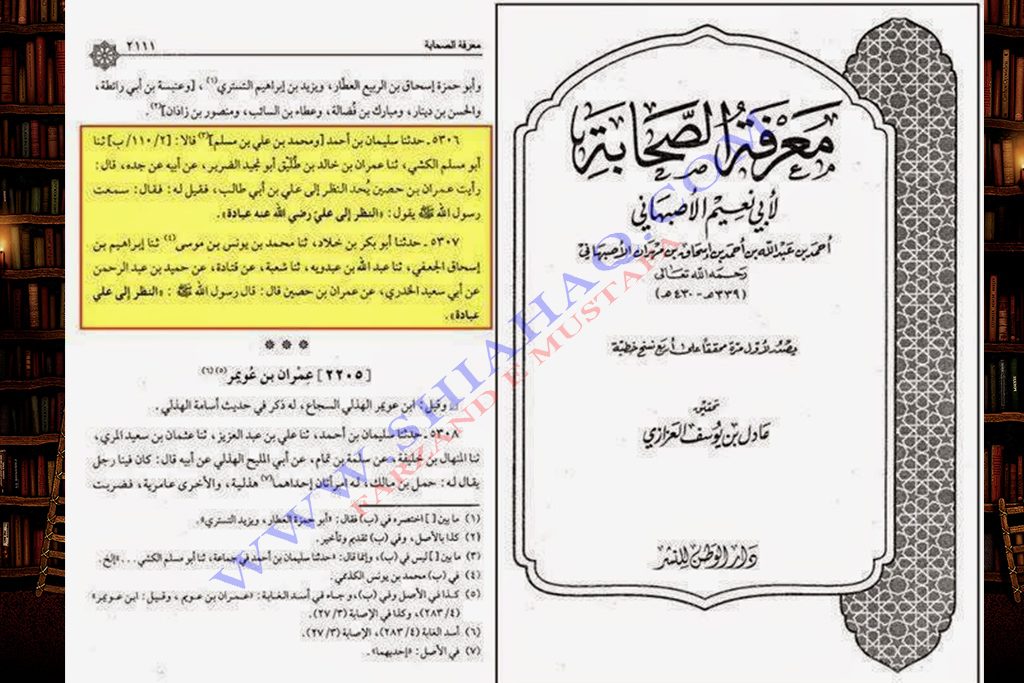 معرفة الصحابة
٢١١١
وأبو حمزة إسحاق بن الربيع العطار، ويزيد بن إبراهيم التستري(١)، [وعنبسة بن أبي رائطة،
والحسن بن دينار، ومبارك بن فضالة، وعطاء بن السائب، ومنصور بن زاذان](٢).
٥٣٠٦ ـ حدثنا سليمان بن أحمد [ومحمد بن علي بن مسلم](٣) قالا: [٢/ ١١٠/ ب] ثنا
أبو مسلم الكشي، ثنا عمران بن خالد بن طُلَيْق أبو نجيد الضرير، عن أبيه عن جده، قال:
رأيت عمران بن حصين يُحد النظر إلى علي بن أبي طالب، فقيل له: فقال: سمعت
رسول الله ﷺ يقول: «النظر إلى عليّ رضي الله عنه عبادة».
٥٣٠٧ ـ حدثنا أبو بكر بن خلاد، ثنا محمد بن يونس بن موسى(٤) ثنا إبراهيم بن
إسحاق الجعفي، ثنا عبد الله بن عبدويه، ثنا شعبة، عن قتادة، عن حميد بن عبد الرحمن
عن أبي سعيد الخدري، عن عمران بن حصين قال: قال رسول الله ﷺ: «النظر إلى علي
عبادة».
***
[٢٢٠٥] عمران بن عُويمر(٥)(٦)
وقيل: ابن عويمر الهذلي السجاع، له ذكر في حديث أسامة الهذلي.
٥٣٠٨ ـ حدثنا سليمان بن أحمد، ثنا علي بن عبد العزيز، ثنا عثمان بن سعيد المري،
ثنا المنهال بن خليفة، عن سلمة بن تمام، عن أبي المليح الهذلي عن أبيه قال: كان فينا رجل
يقال له: حمل بن مالك، له امرأتان إحداهما(٧) هذلية، والأخرى عامرية، فضربت
(١) ما بين [ ] اختصره في (ب) فقال: «أبو حمزة العطار، ويزيد التستري».
(٢) كذا بالأصل، وفي (ب) تقديم وتأخير.
(٣) ما بين [ ] ليس في (ب)، وإنما قال: «حدثنا سليمان بن أحمد في جماعة، ثنا أبو مسلم الكشي ...»إلخ.
(٤) في (ب) محمد بن يونس الكديمي.
(٥) كذا في الأصل وفي (ب)، وجاء في أسد الغابة: «عمران بن عويم، وقيل: ابن عويمر»
(٤/ ٢٨٣)، وكذا في الإصابة (٣/ ٢٧).
(٦) أسد الغابة (٤/ ٢٨٣)، الإصابة (٣/ ٢٧).
(٧) في الأصل: «إحديهما».
معرفة الصحابة
لأبي نعيم الأصبهاني
أحمد بن عبد الله بن أحمد بن إسحاق بن مهران الأصبهاني
رحمه الله تعالى
(٣٣٩هـ - ٤٣٠هـ)
يصدر لأول مرة محققا على أربع نسخ خطية
تحقيق
عادل بن يوسف العزازي
دار الوطن للنشر
WWW.SHIAHAQ.COM
FARZAND E MUSTAFA